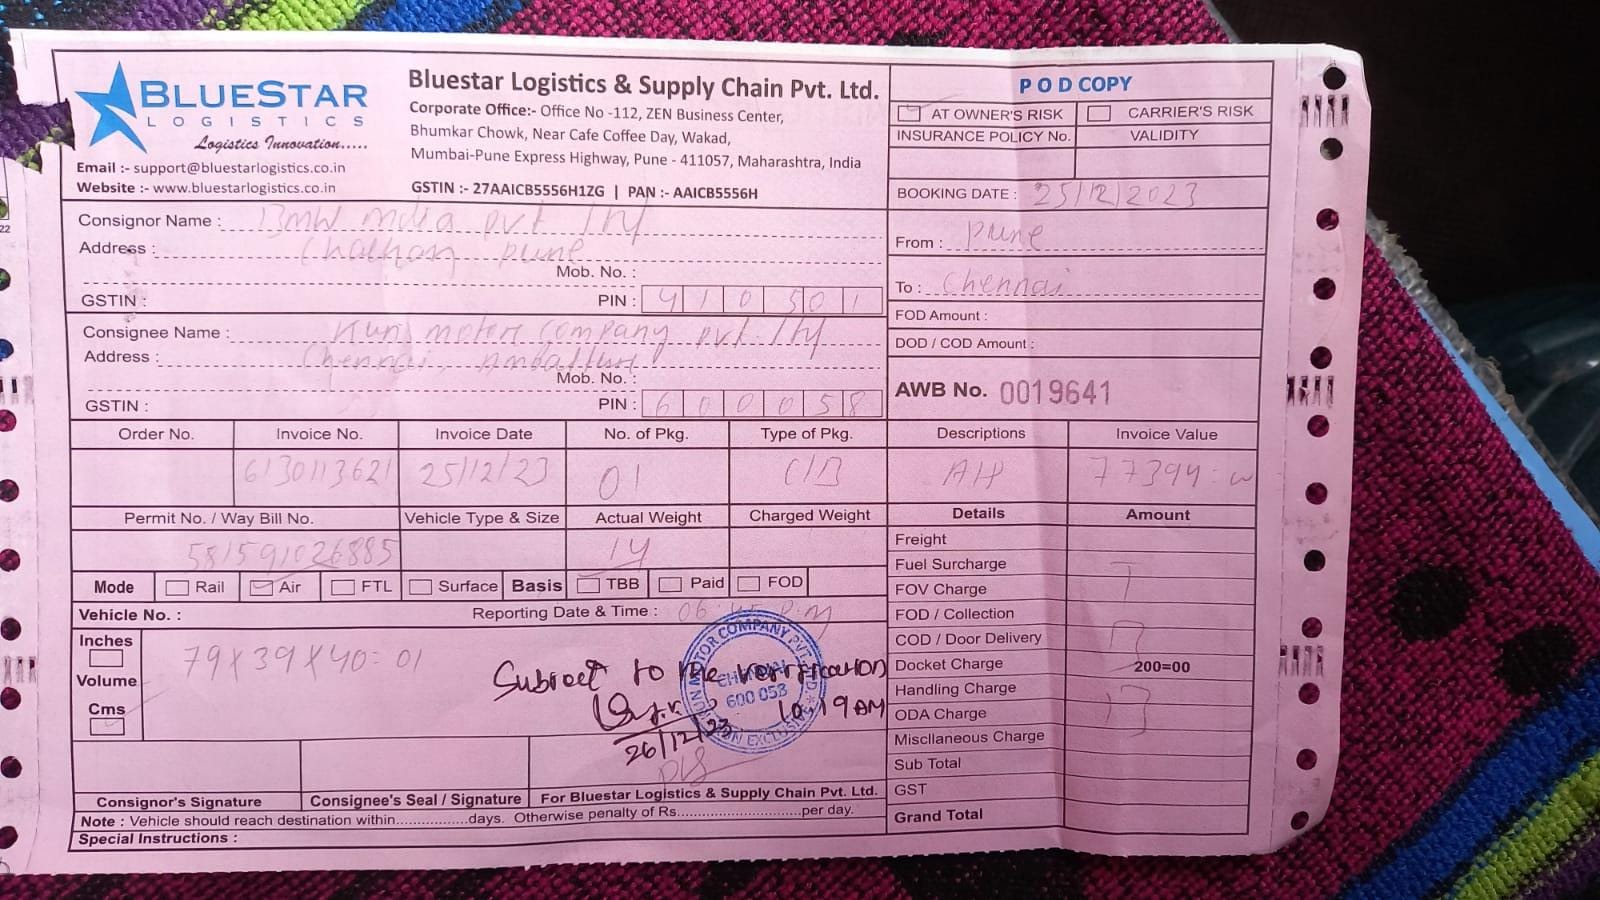 BLUESTAR
LOGISTICS
Logistics Innovation.....
Email :- support@bluestarlogistics.co.in
Website :- www.bluestarlogistics.co.in
Bluestar Logistics & Supply Chain Pvt. Ltd.
Corporate Office:- Office No -112, ZEN Business Center,
Bhumkar Chowk, Near Cafe Coffee Day, Wakad,
Mumbai-Pune Express Highway, Pune - 411057, Maharashtra, India
GSTIN :- 27AAICB5556H1ZG | PAN :- AAICB5556H
POD COPY
AT OWNER'S RISK CARRIER'S RISK
INSURANCE POLICY No. VALIDITY
BOOKING DATE : 25/12/2023
From : Pune
To : Chennai
FOD Amount :
DOD / COD Amount :
AWB No. 0019641
Consignor Name : BMW India pvt ltd
Address : pune
Mob. No. :
GSTIN : PIN : 410501
Consignee Name : Kun motor company pvt. ltd
Address : Chennai,
Mob. No. :
GSTIN : PIN : 600058
Order No. Invoice No. Invoice Date No. of Pkg. Type of Pkg. Descriptions Invoice Value
6130113621 25/12/23 01 C/B 77399
Permit No. / Way Bill No. Vehicle Type & Size Actual Weight Charged Weight Details Amount
581591026885 14
Mode Rail Air FTL Surface Basis TBB Paid FOD
Vehicle No. : Reporting Date & Time : 06:45 P.M
Inches
Volume
Cms
79X39X40=01
Subject to the verification
10.19AM
26/12/23
CHENNAI
600 058
Freight
Fuel Surcharge
FOV Charge
FOD / Collection
COD / Door Delivery
Docket Charge 200=00
Handling Charge
ODA Charge
Miscllaneous Charge
Sub Total
GST
Grand Total
T
B
B
Consignor's Signature Consignee's Seal / Signature For Bluestar Logistics & Supply Chain Pvt. Ltd.
Note : Vehicle should reach destination within..................days. Otherwise penalty of Rs..............................per day.
Special Instructions :